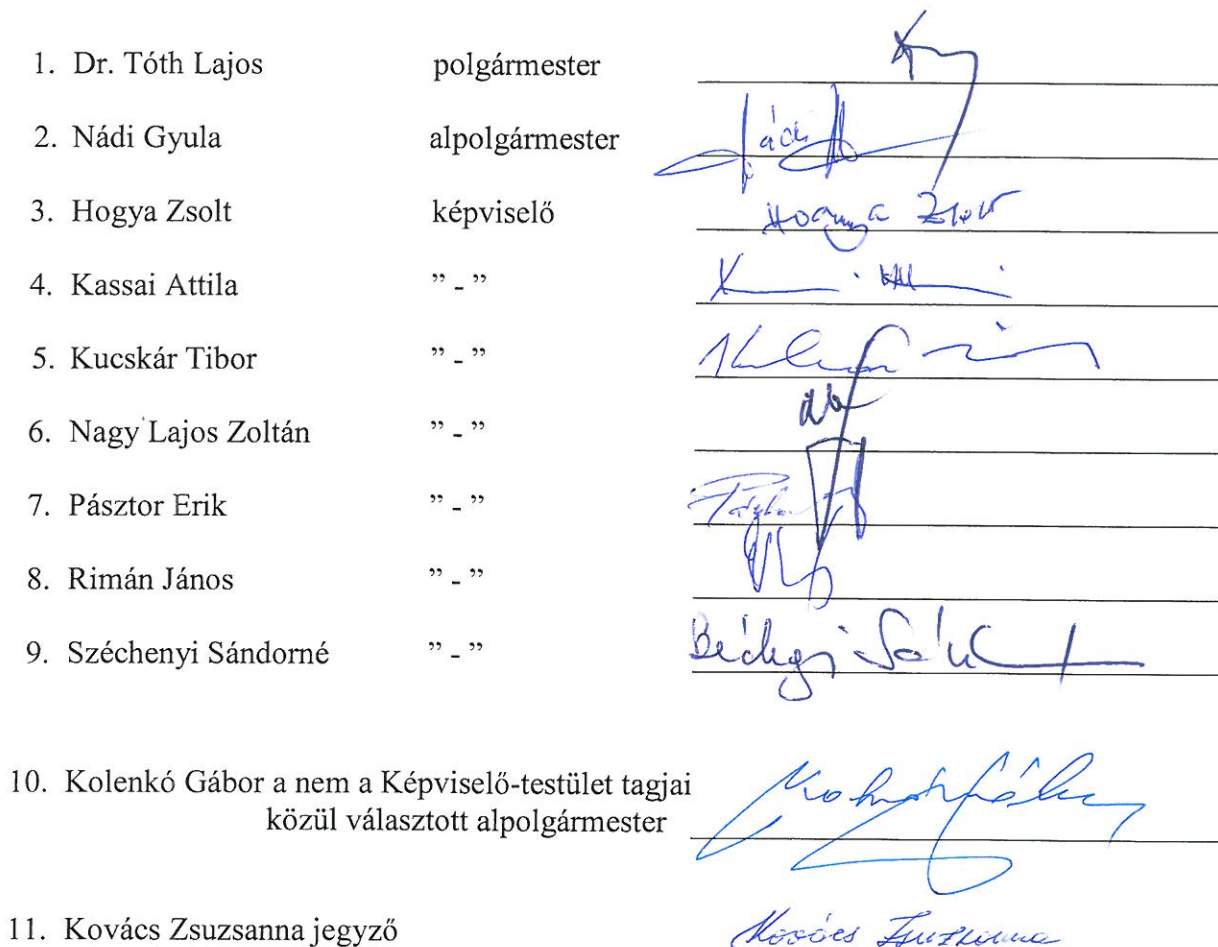 1. Dr. Tóth Lajos polgármester
2. Nádi Gyula alpolgármester
3. Hogya Zsolt képviselő Hogya Zsolt
4. Kassai Attila ” - ”
5. Kucskár Tibor ” - ”
6. Nagy Lajos Zoltán ” - ”
7. Pásztor Erik ” - ”
8. Rimán János ” - ”
9. Széchenyi Sándorné ” - ”
10. Kolenkó Gábor a nem a Képviselő-testület tagjai
közül választott alpolgármester
11. Kovács Zsuzsanna jegyző Kovács Zsuzsanna